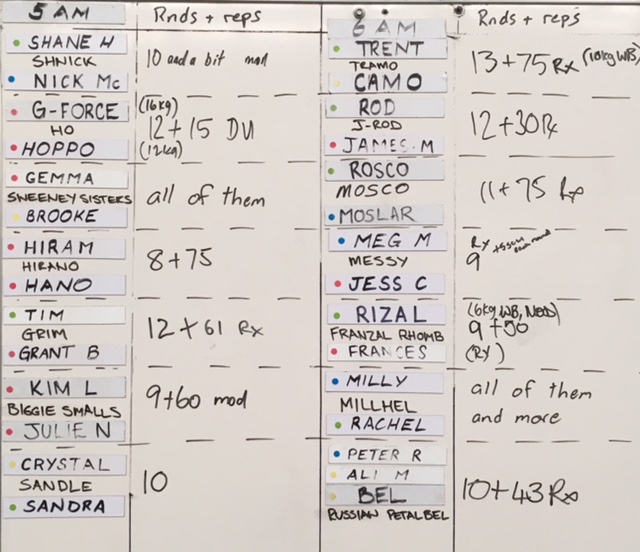 5 AM Rnds + reps
SHANE H
SHNICK
NICK Mc
10 and a bit mod
G-FORCE
HO
HOPPO
(16kg)
12+15 DU
(12kg)
GEMMA
SWEENEY SISTERS
BROOKE
all of them
HIRAM
HIRANO
HANO
8+75
TIM
GRIM
GRANT B
12+61 Rx
KIM L
BIGGIE SMALLS
JULIE N
9+60 mod
CRYSTAL
SANDLE
SANDRA
10
6 AM Rnds + reps
TRENT
TRAMO
CAMO
13+75 Rx (10kg WB)
ROD
J-ROD
JAMES.M
12+30 Rx
ROSCO
MOSCO
MOSLAR
11+75 Rx
MEG M
MESSY
JESS C
Rx
9
RIZAL
FRANZAL RHOMB
FRANCES
(6kg WB,
9+50
(RX)
MILLY
MILLHEL
RACHEL
all of them
and more
PETER R
ALI M
BEL
RUSSIAN PETALBEL
10+43 Rx